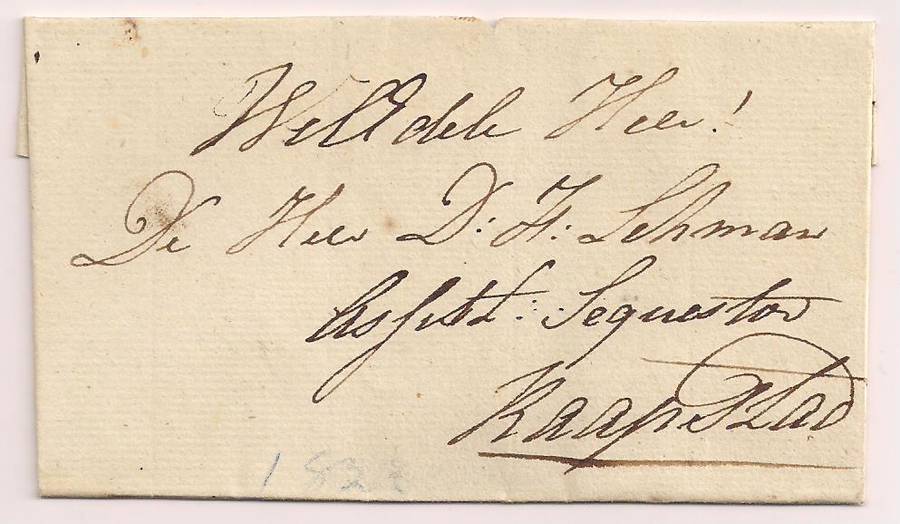 WelEdele Heer!
De Heer D: F: Lehman
Assist: Sequestor
Kaapstad